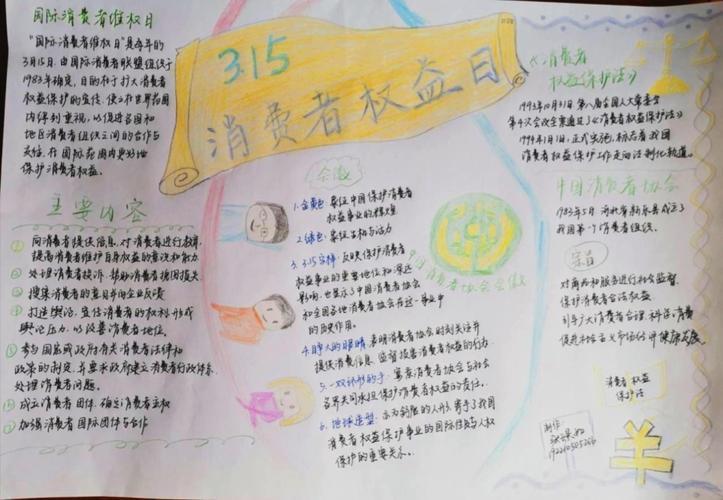 国际消费者维权日
"国际消费者维权日"是每年的
3月15日.由国际消费者联盟组织于
1983年确定,目的在于扩大消费者
权益保护的宣传,使之在世界范围
内得到重视,以促进各国和
地区消费者组织之间的合作与
交往,在国际范围内更好地
保护消费者权益.
主要内容
① 向消费者提供信息,对消费者进行教育,
提高消费者维护自身权益的意识和能力
② 处理消费者投诉,帮助消费者挽回损失
③ 搜集消费者的意见并向企业反馈
④ 打造舆论,宣传消费者的权利.形成
舆论压力,以改善消费者地位.
⑤ 参与国家或政府有关消费者法律和
政策的制定,并要求政府建立消费者行政体系.
处理消费者问题.
⑥ 成立消费者团体.确定消费者主权
⑦ 加强消费者国际团体与合作
3.15
消费者权益日
会徽
1.金黄色:象征中国保护消费者
权益事业的辉煌
2.绿色:象征公构与活力
3.3.15字样,反映保护消费者
权益事业的重要地位和深远
影响,也显示了中国消费者协会
和全国各地消费者协会在这一事业中
的积极作用.
4.睁大的眼睛.表明消费者协会时刻关注并
提供消费信息,监督损害消费者权益的行为.
5.一双环形的手.寓意消费者协会与社会
各界共同承担保护消费者权益的责任.
6.地球造型.
消费者权益保护事业的国际性质与人权
保护的重要关系.
中国消费者协会会徽
《消费者
权益保护法》
1993年10月31日第八届全国人大常委会
第4次会议全票通过了《消费者权益保护法》
1994年1月1日,正式实施,标志着我国
消费者权益保护工作走向法制化轨道.
中国消费者协会
1983年5月 河北省新乐县成立了
我国第一个消费者组织.
宗旨
对商品和服务进行社会监督.
保护消费者合法权益
引导广大消费者合理.科学消费
促进社会主义市场经济健康发展.
消费者权益
保护法
制作
¥